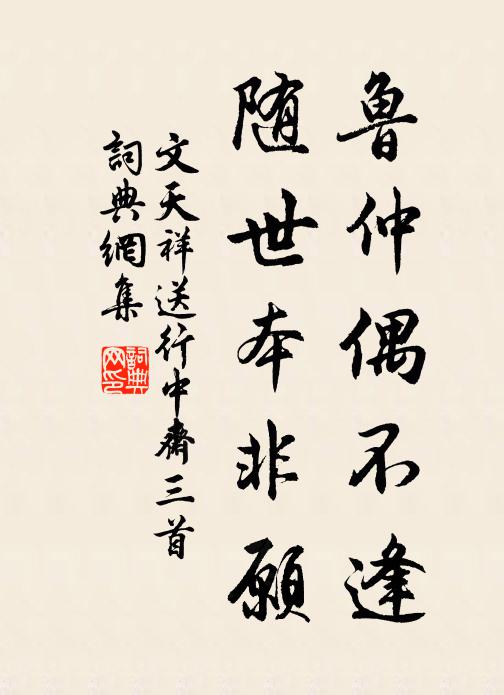 魯仲偶不逢
随世本非願
文天祥送行中齋三首
詞典網集
詞典網印